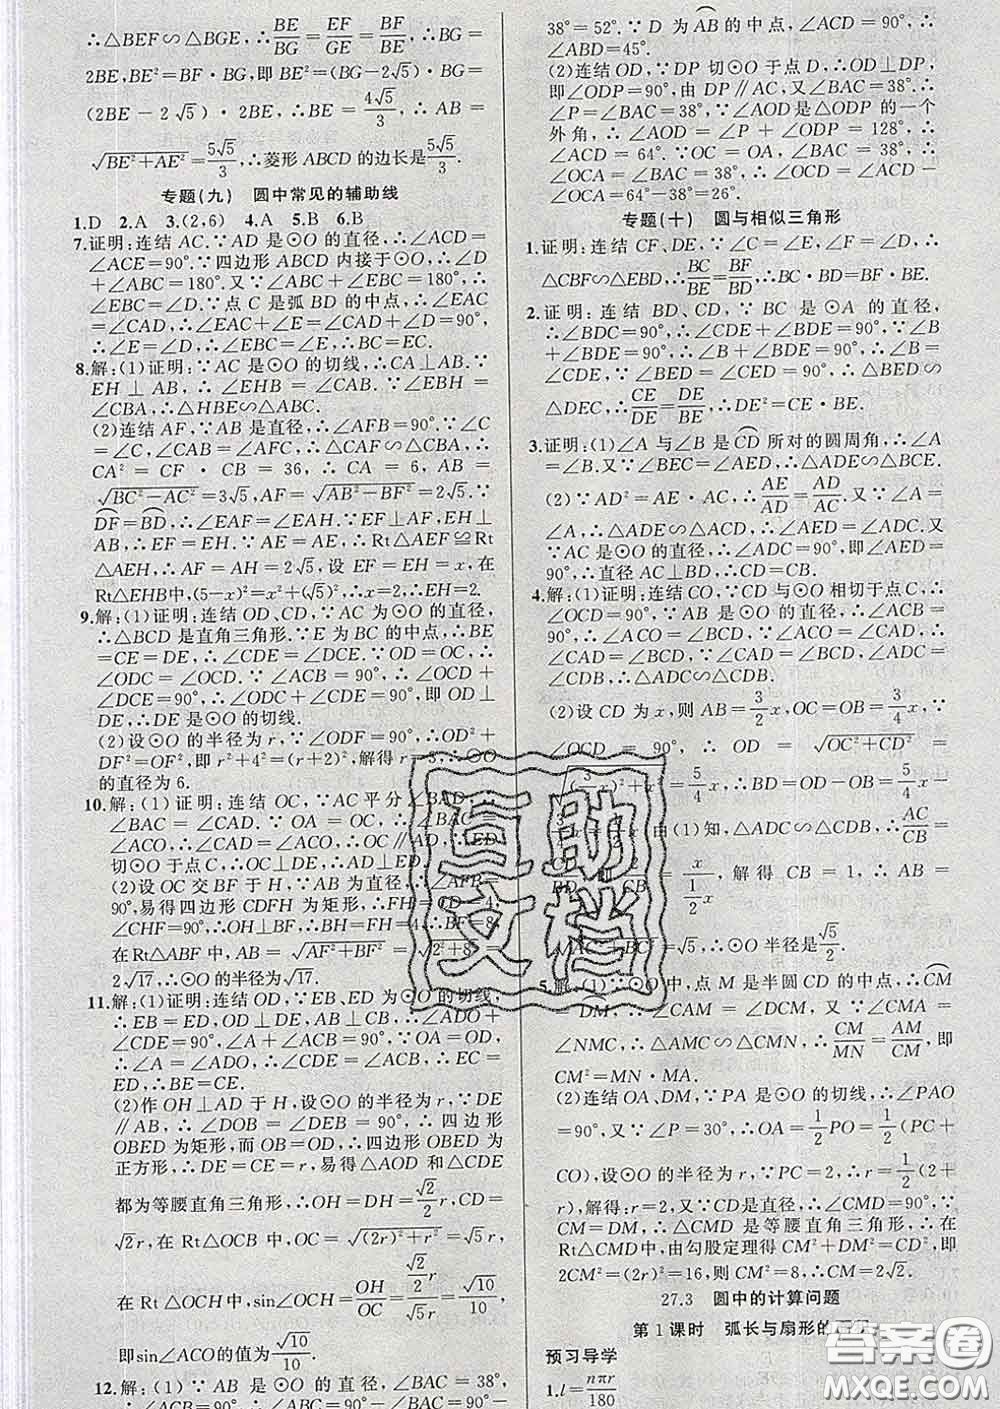 ∴△BEF∽△BGE,∴BE/BG=EF/GE=BF/BE,∴BG=
2BE,BE²=BF·BG,即BE²=(BG-2√5)·BG=
(2BE-2√5)·2BE,∴BE=4√5/3,∴AB=
√(BE²+AE²)=5√5/3,∴菱形ABCD的边长是5√5/3.
专题(九) 圆中常见的辅助线
1.D 2.A 3.(2,6) 4.A 5.B 6.B
7.证明:连结AC.∵AD是⊙O的直径,∴∠ACD=
∠ACE=90°.∵四边形ABCD内接于⊙O,∴∠D
+∠ABC=180°.又∵∠ABC+∠EBC=180°,∴
∠EBC=∠D.∵点C是弧BD的中点,∴∠EAC
=∠CAD,∴∠EAC+∠E=∠CAD+∠D=90°,
∴∠E=∠D,∴∠EBC=∠E,∴BC=EC.
8.解:(1)证明:∵AC是⊙O的切线,∴CA⊥AB.∵
EH⊥AB,∴∠EHB=∠CAB.∵∠EBH=
∠CBA,∴△HBE∽△ABC.
(2)连结AF,∵AB是直径,∴∠AFB=90°.∵∠C
=∠C,∠CAB=∠AFC,∴△CAF∽△CBA,∴
CA²=CF·CB=36,∴CA=6,AB=
√(BC²-AC²)=3√5,AF=√(AB²-BF²)=2√5.∵
DF=BD,∴∠EAF=∠EAH.∵EF⊥AF,EH⊥
AB,∴EF=EH.∵AE=AE,∴Rt△AEF≌Rt
△AEH,∴AF=AH=2√5,设EF=EH=x,在
Rt△EHB中,(5-x)²=x²+(√5)²,∴x=2,∴EH=2.
9.解:(1)证明:连结OD,CD,∵AC为⊙O的直径,
∴△BCD是直角三角形.∵E为BC的中点,∴BE
=CE=DE,∴∠CDE=∠DCE.∵OD=OC,∴
∠ODC=∠OCD.∵∠ACB=90°,∴∠OCD+
∠DCE=90°,∴∠ODC+∠CDE=90°,即OD⊥
DE,∴DE是⊙O的切线.
(2)设⊙O的半径为r,∵∠ODF=90°,∴OD²+
DF²=OF²,即r²+4²=(r+2)²,解得r=3,∴⊙O
的直径为6.
10.解:(1)证明:连结OC,∵AC平分∠BAD,
∴∠BAC=∠CAD.∵OA=OC,∴∠BAC=
∠ACO,∴∠CAD=∠ACO,∴OC∥AD.∵ED
切⊙O于点C,∴OC⊥DE,∴AD⊥ED.
(2)设OC交BF于H,∵AB为直径,∴∠AFB=
90°,易得四边形CDFH为矩形,∴FH=CD=4,
∠CHF=90°,∴OH⊥BF,∴BH=FH=4,∴BF=8.
在Rt△ABF中,AB=√(AF²+BF²)=√(2²+8²)=
2√17,∴⊙O的半径为√17.
11.解:(1)证明:连结OD,∵EB,ED为⊙O的切线,
∴EB=ED,OD⊥DE,AB⊥CB,∴∠ADO+
∠CDE=90°,∠A+∠ACB=90°.∵OA=OD,
∴∠A=∠ADO,∴∠CDE=∠ACB,∴EC=
ED,∴BE=CE.
(2)作OH⊥AD于H,设⊙O的半径为r,∵DE
∥AB,∴∠DOB=∠DEB=90°,∴四边形
OBED为矩形,而OB=OD,∴四边形OBED为
正方形,∴DE=CE=r,易得△AOD和△CDE
都为等腰直角三角形,∴OH=DH=√2/2 r,CD=
√2r,在Rt△OCB中,OC=√((2r)²+r²)=√5r,
在Rt△OCH中,sin∠OCH=OH/OC=(√2/2 r)/(√5r)=√10/10,
即sin∠ACO的值为√10/10.
12.解:(1)∵AB是⊙O的直径,∠BAC=38°,
∴∠ACB=90°,∴∠ABC=∠ACB-∠BAC=90°-
38°=52°.∵D为AB的中点,∠ACD=90°,∴
∠ABD=45°.
(2)连结OD,∵DP切⊙O于点D,∴OD⊥DP,
即∠ODP=90°,由DP∥AC,又∠BAC=38°,∴
∠P=∠BAC=38°.∵∠AOD是△ODP的一个
外角,∴∠AOD=∠P+∠ODP=128°,∴
∠ACD=64°.∵OC=OA,∠BAC=38°,∴
∠OCA=∠BAC=38°,∴∠OCD=∠ACD-
∠OCA=64°-38°=26°.
专题(十) 圆与相似三角形
1.证明:连结CF,DE,∵∠C=∠E,∠F=∠D,∴
△CBF∽△EBD,∴BC/BE=BF/BD,∴BC·BD=BF·BE.
2.证明:连结BD,CD,∵BC是⊙A的直径,
∴∠BDC=90°,∴∠CDE+∠BDE=90°.∵∠B
+∠BED=90°,∴∠B+∠BDE=90°,∴∠B=
∠CDE,∵∠BED=∠CED=90°,∴△BED∽
△DEC,∴CE/DE=DE/BE,∴DE²=CE·BE.
3.证明:(1)∠A与∠B是CD所对的圆周角,∴∠A
=∠B.又∵∠BEC=∠AED,∴△ADE∽△BCE.
(2)∵AD²=AE·AC,∴AE/AD=AD/AC.又∵∠A=
∠A,∴△ADE∽△ACD,∴∠AED=∠ADC.又
∵AC是⊙O的直径,∴∠ADC=90°,即∠AED=
90°,∴直径AC⊥BD,∴CD=CB.
4.解:(1)证明:连结CO,∵CD与⊙O相切于点C,∴
∠OCD=90°.∵AB是⊙O的直径,∴∠ACB=
90°,∴∠ACO=∠BCD.∵∠ACO=∠CAD,∴
∠CAD=∠BCD.又∵∠ADC=
∠CDB,∴△ADC∽△CDB.
(2)设CD为x,则AB=3/2 x,OC=OB=3/4 x,∵
∠OCD=90°,∴OD=√(OC²+CD²)=
)²+x²=5/4 x,∴BD=OD-OB=5/4 x-
由(1)知,△ADC∽△CDB,∴AC/CB=
x/(1/2 x),解得CB=1,∴AB=
=√5,∴⊙O半径是√5/2.
5.解:(1)∵⊙O中,点M是半圆CD的中点,∴CM
=DM,∴∠CAM=∠DCM,又∵∠CMA=
∠NMC,∴△AMC∽△CMN,∴CM/MN=AM/CM,即
CM²=MN·MA.
(2)连结OA,DM,∵PA是⊙O的切线,∴∠PAO
=90°.又∵∠P=30°,∴OA=1/2 PO=1/2(PC+
CO),设⊙O的半径为r,∵PC=2,∴r=1/2(2+
r),解得:r=2,又∵CD是直径,∴∠CMD=90°.∵
CM=DM,∴△CMD是等腰直角三角形,∴在
Rt△CMD中,由勾股定理得CM²+DM²=CD²,即
2CM²=(2r)²=16,则CM²=8,∴CM=2√2.
27.3 圆中的计算问题
第1课时 弧长与扇形的
预习导学
1.l=nπr/180
互助文档
答案圈
MXQE.COM